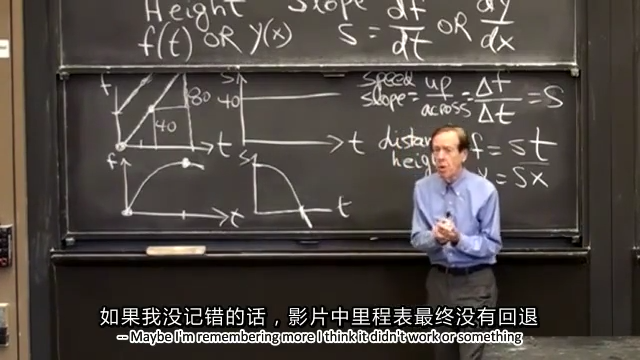 Height Slope df dy
f(t) OR y(x) s = dt OR dx
f 80 40 t
s 40 t
speed up Δf
slope = across = Δt = S
distan
heigh f = st
= sx
f t
s t
如果我没记错的话，影片中里程表最终没有回退
-- Maybe I'm remembering more I think it didn't work or something